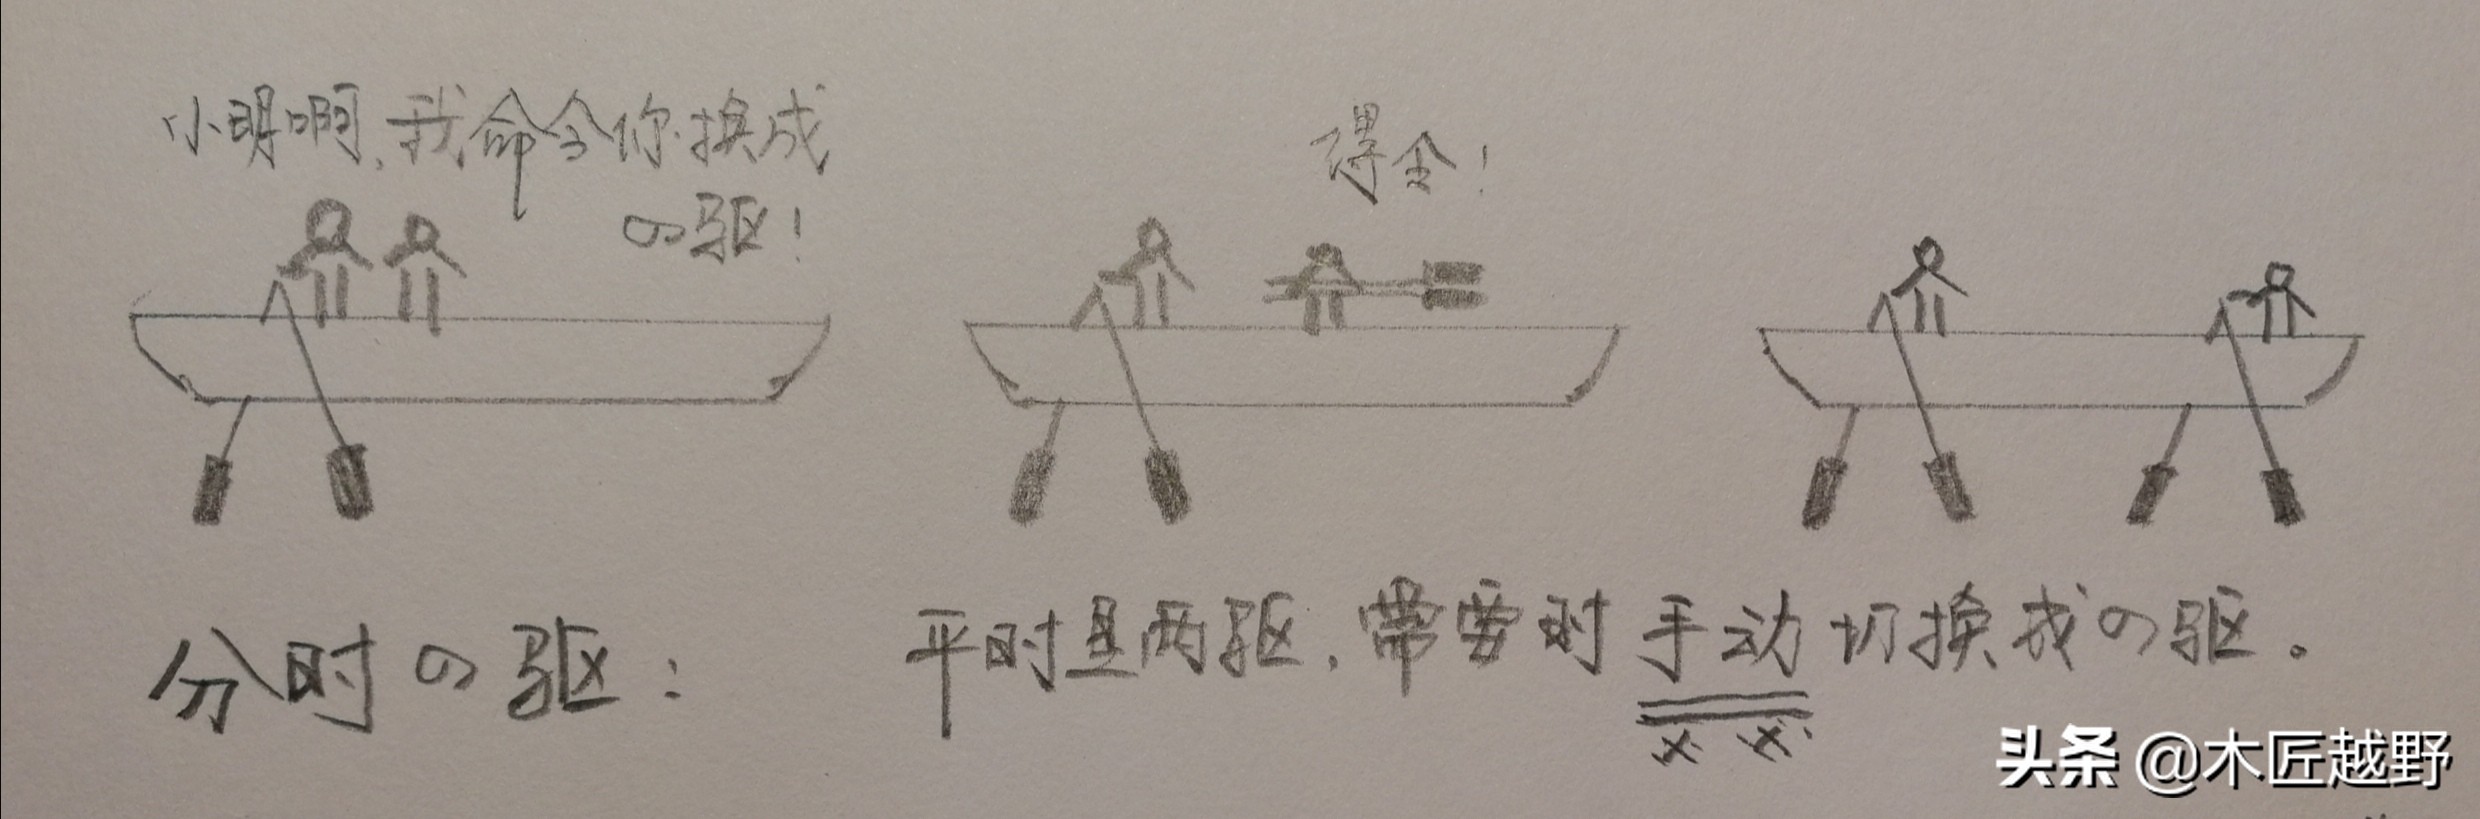 小明啊,我命令你换成
四驱!
得令!
分时四驱:
平时是两驱,需要时手动切换成四驱。
头条 @木匠越野